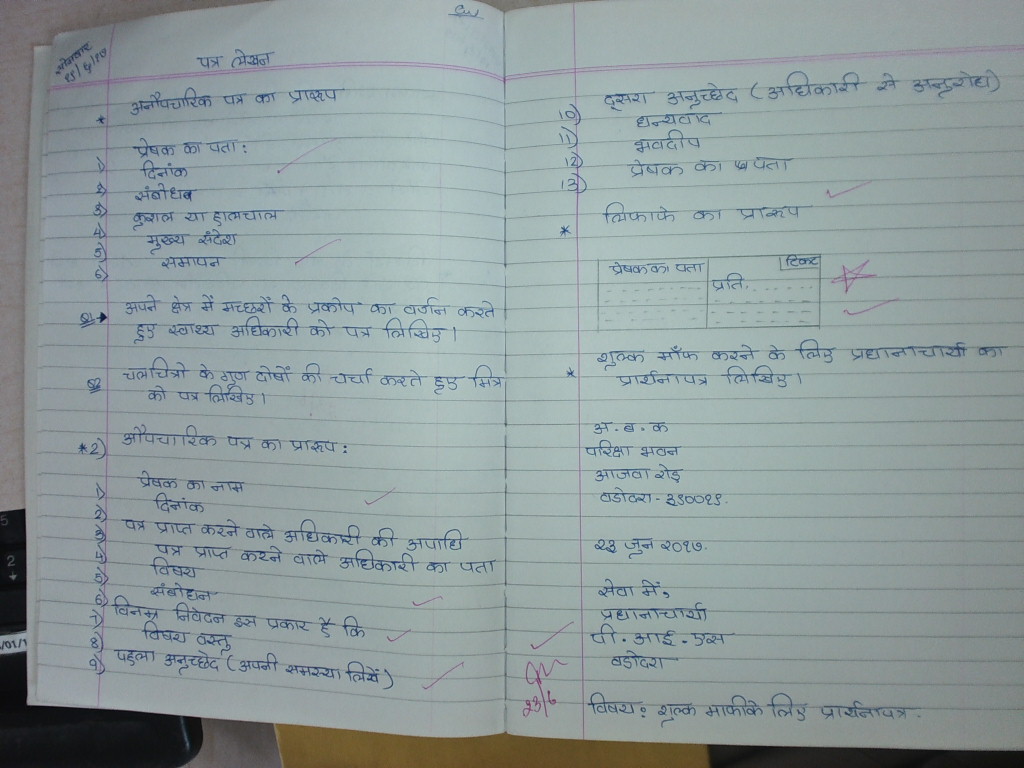 सोमवार
पत्र लेखन
* अनौपचारिक पत्र का प्रारूप
1) प्रेषक का पता :
2) दिनांक
3) संबोधन
4) कुशल या हालचाल
5) मुख्य संदेश
6) समापन
Q1→ अपने क्षेत्र में मच्छरों के प्रकोप का वर्णन करते
हुए स्वाथ्य अधिकारी को पत्र लिखिए।
Q2 चलचित्रो के गुण दोषों की चर्चा करते हुए मित्र
को पत्र लिखिए।
*2) औपचारिक पत्र का प्रारूप :
1) प्रेषक का नाम
2) दिनांक
3) पत्र प्राप्त करने वाले अधिकारी की अपाधि
4) पत्र प्राप्त करने वाले अधिकारी का पता
5) विषय
6) संबोधन
7) विनम्र निवेदन इस प्रकार हैं कि
8) विषय वस्तु
9) पहला अनुच्छेद (अपनी समस्या लिखें)
CW
10) दूसरा अनुच्छेद (अधिकारी से अनुरोध)
11) धन्यवाद
12) भवदीप
13) प्रेषक का पता
* लिफाफे का प्रारूप
प्रेषक का पता टिकट
प्रति.
* शुल्क माँफ करने के लिए प्रधानाचार्या का
प्रार्थनापत्र लिखिए।
अ. ब. क
परिक्षा भवन
आजवा रोड़
वडोदरा - ३९००१९.
२३ जून २०१७.
सेवा में,
प्रधानाचार्या
पी. आई. एस
वडोदरा
23/6
विषय : शुल्क माफीके लिए प्रार्थनापत्र.